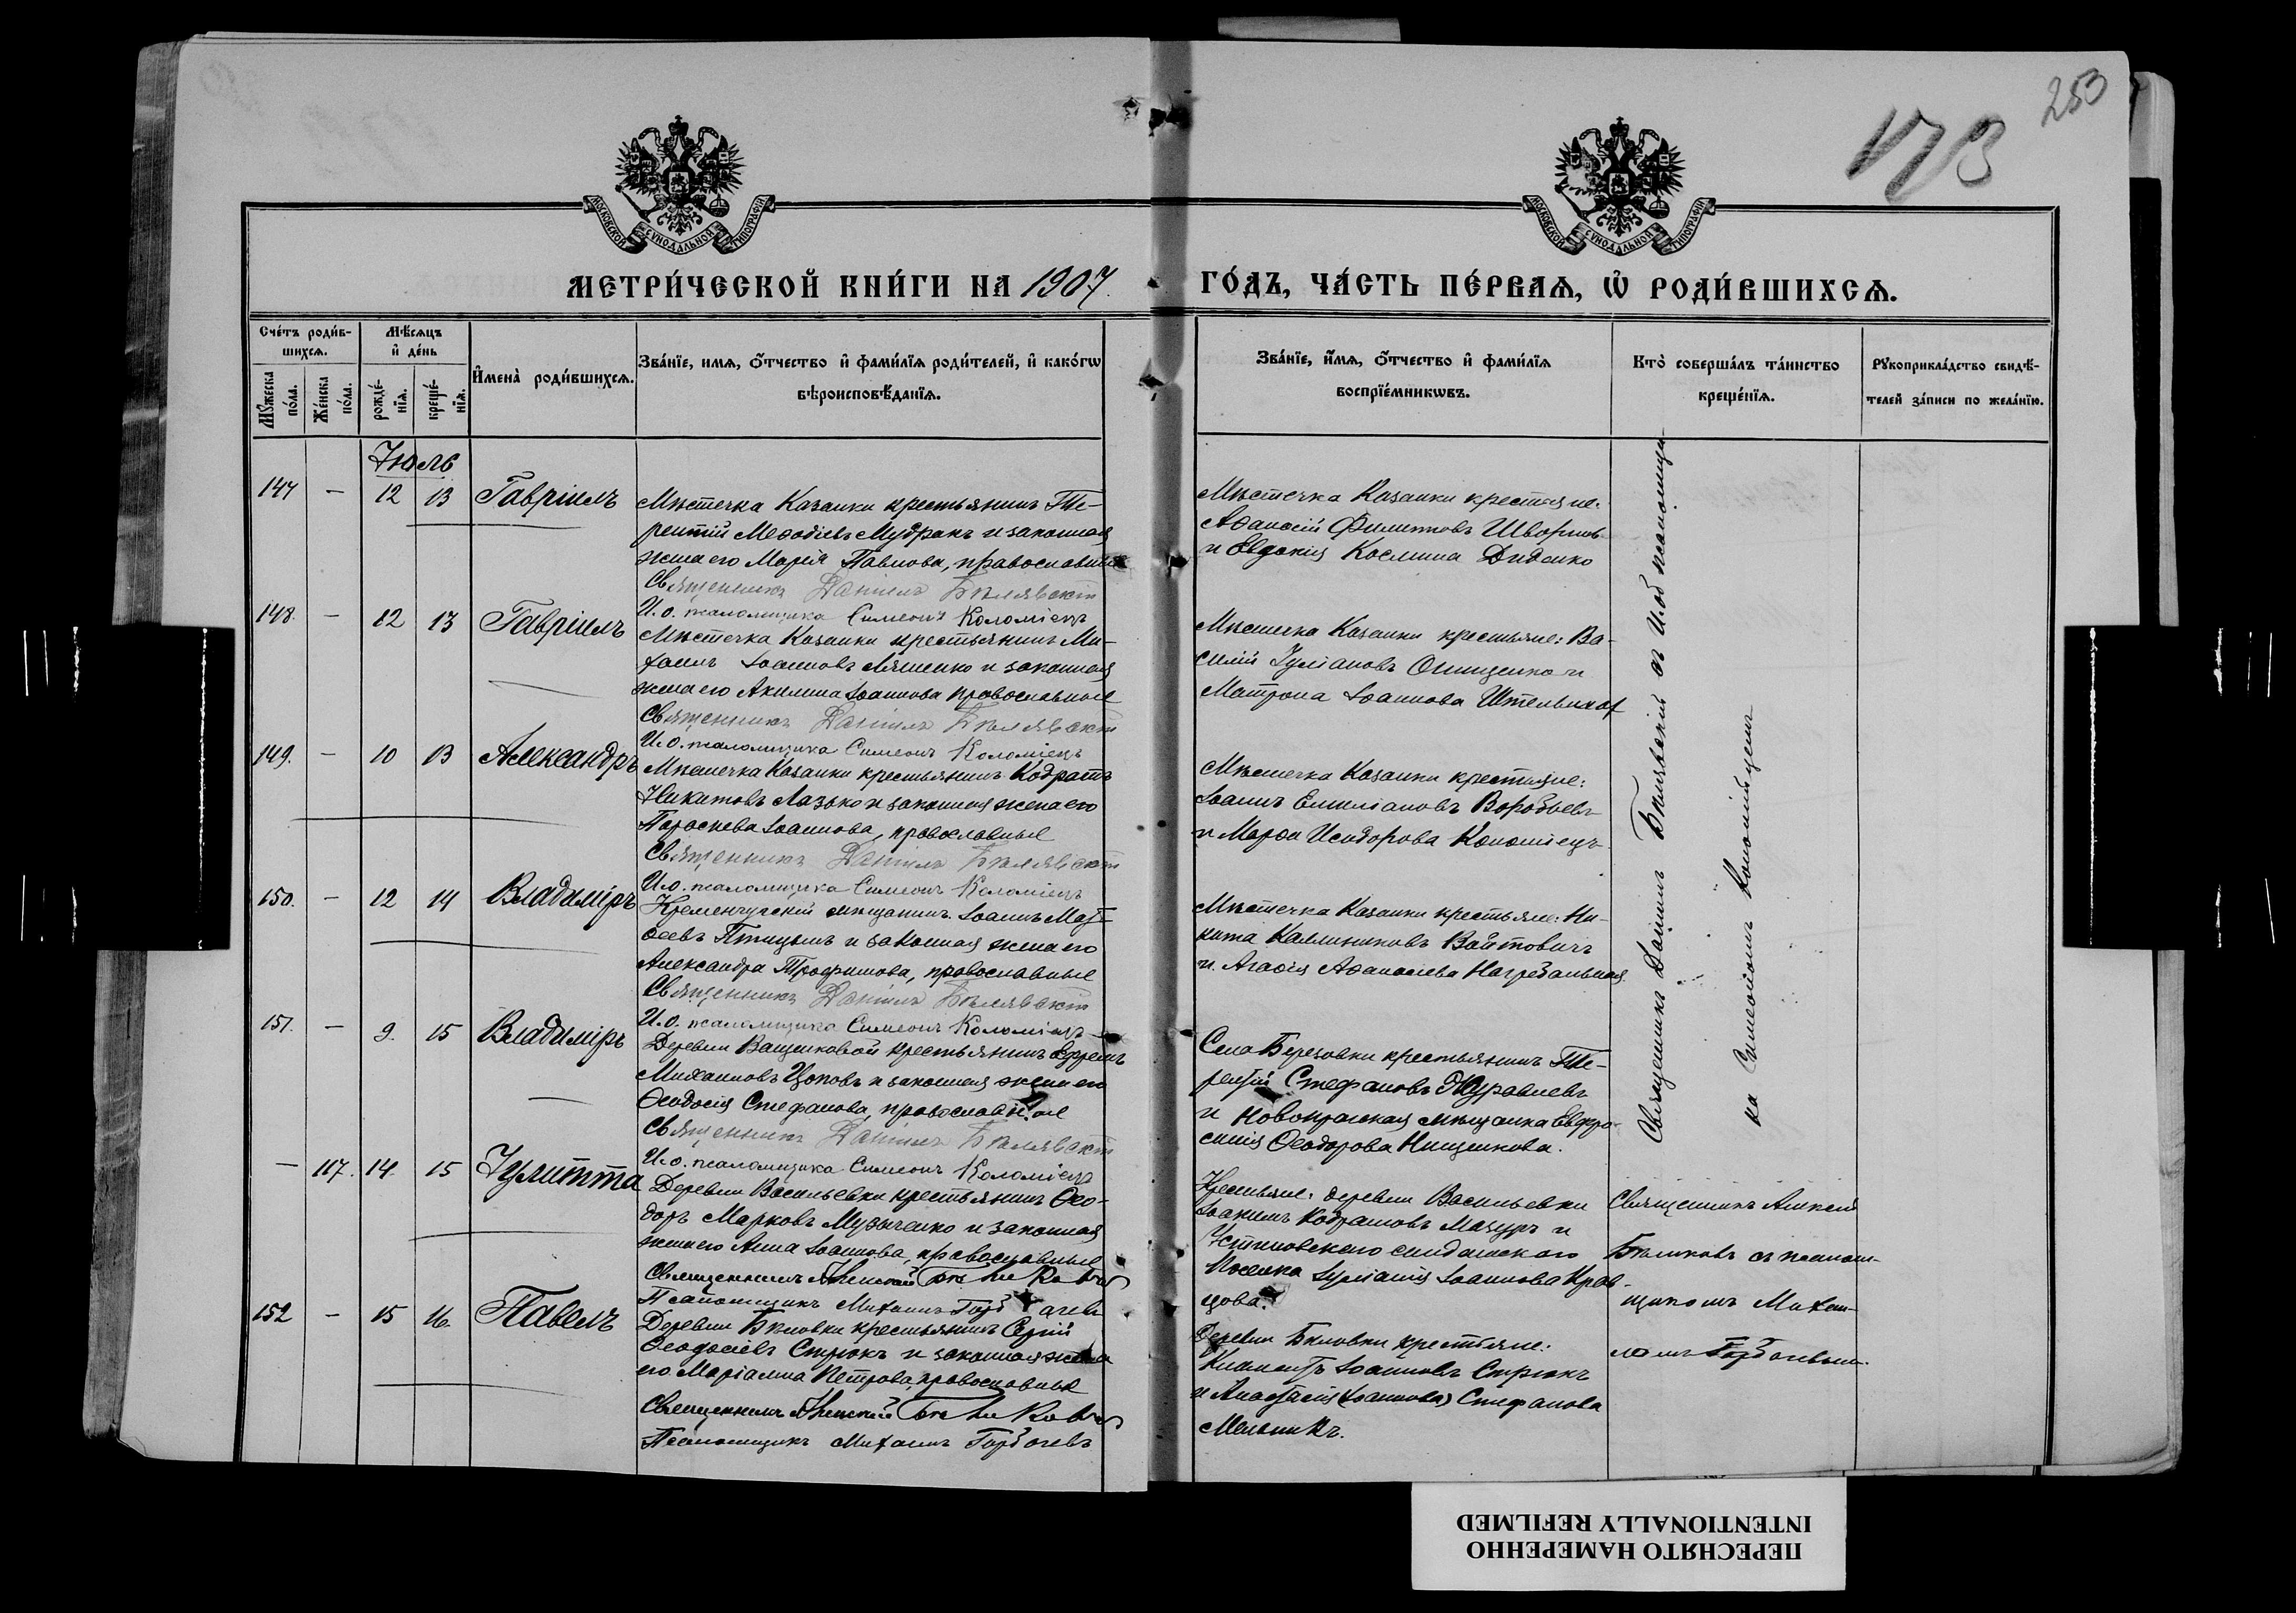 253
173
МОСКОВСКОЙ СѴНОДАЛЬНОЙ ТИПОГРАФІИ
МОСКОВСКОЙ СѴНОДАЛЬНОЙ ТИПОГРАФІИ
МЕТРИ́ЧЕСКОЙ КНИ́ГИ НА 1907
ГО́ДЪ, ЧА́СТЬ ПЕ́РВАѦ, Ѡ҆ РОДИ́ВШИХСѦ.
Сче́тъ роди́в-
шихсѧ.
Мѣ́сѧцъ
и҆ де́нь
Мꙋ́жеска
по́ла.
Же́нска
по́ла.
рожде́-
нїѧ.
креще́-
нїѧ.
И҆мена̀ роди́вшихсѧ.
Зва́нїе, имѧ, ѻ҆́тчество и҆ фами́лїѧ роди́телей, и҆ како́гѡ
вѣроисповѣ́данїѧ.
Зва́нїе, и҆́мѧ, ѻ҆́тчество и҆ фами́лїѧ
воспрїе́мникѡвъ.
Кто̀ соверша́лъ та́инство
креще́нїѧ.
Рꙋкоприкла́дство свидѣ́-
телей за́писи по жела́нїю.
Іюль
147 — 12 13 Гавріилъ
Мѣстечка Казанки крестьянинъ Те-
рентій Меѳодіевъ Мудракъ и законная
жена его Марія Павлова, православные
Священникъ Даніилъ Бѣлявскій
И. о. псаломщика Симеонъ Коломіецъ
Мѣстечка Казанки крестьяне:
Аѳанасій Филиповъ
и Евдокія Космина Диденко
148. — 12 13 Гавріилъ
Мѣстечка Казанки крестьянинъ Ми-
хаилъ Іоанновъ Ляшенко и законная
жена его Акилина Іоаннова православные
Священникъ Даніилъ Бѣлявскій
И. о. псаломщика Симеонъ Коломіецъ
Мѣстечка Казанки крестьяне: Ва-
силій Іуліановъ Онищенко и
Матрона Іоаннова
149. — 10 13 Александръ
Мѣстечка Казанки крестьянинъ Кодратъ
Никитовъ Лазько и законная жена его
Параскева Іоаннова, православные
Священникъ Даніилъ Бѣлявскій
И. о. псаломщика Симеонъ Коломіецъ
Мѣстечка Казанки крестьяне:
Іоаннъ Емиліановъ Воробьевъ
и Марѳа Исидорова Коломіецъ
150. — 12 14 Владиміръ
Кременчугскій мѣщанинъ Іоаннъ Мат-
ѳеевъ Птицынъ и законная жена его
Александра Трофимова, православные
Священникъ Даніилъ Бѣлявскій
И. о. псаломщика Симеонъ Коломіецъ
Мѣстечка Казанки крестьяне: Ни-
кита Каллиниковъ Войтовичъ
и Агаѳія Аѳанасіева Нагребальная
151. — 9. 15 Владиміръ
Деревни крестьянинъ Ефремъ
Михаиловъ и законная жена его
Ѳеодосія Стефанова, православные
Священникъ Даніилъ Бѣлявскій
И. о. псаломщика Симеонъ Коломіецъ
Села Березовки крестьянинъ Те-
рентій Стефановъ Журавлевъ
и мѣщанка Евфро-
синія Ѳеодорова Нищенкова.
Священникъ Даніилъ Бѣлявскій съ И. об псаломщи-
ка Симеономъ Коломійцемъ
— 117. 14. 15 Іулитта
Деревни Васильевки крестьянинъ Ѳео-
доръ Марковъ Музыченко и законная
жена его Анна Іоаннова, православные
Священникъ Алексій Бѣликовъ
Псаломщикъ Михаилъ Горбачевъ
Крестьяне: деревни Васильевки
Іоакимъ Кодратовъ Мазуръ и
Устиновского
Поселка Іуліанія Іоаннова Крав-
цова.
Священникъ Алексій
Бѣликовъ съ псалом-
щикомъ Михаи-
ломъ Горбачевымъ.
152 — 15 16. Павелъ
Деревни Бѣловки крестьянинъ Сергій
Ѳеодосіевъ Стрюкъ и законная жена
его Маріамна Петрова, православные
Священникъ Алексій Бѣликовъ
Псаломщикъ Михаилъ Горбачевъ
Деревни Бѣловки крестьяне:
Климентъ Іоанновъ Стрюкъ
и Анастасія (Іоаннова) Стефанова
Мельникъ.
ПЕРЕСНЯТО НАМЕРЕННО
INTENTIONALLY REFILMED